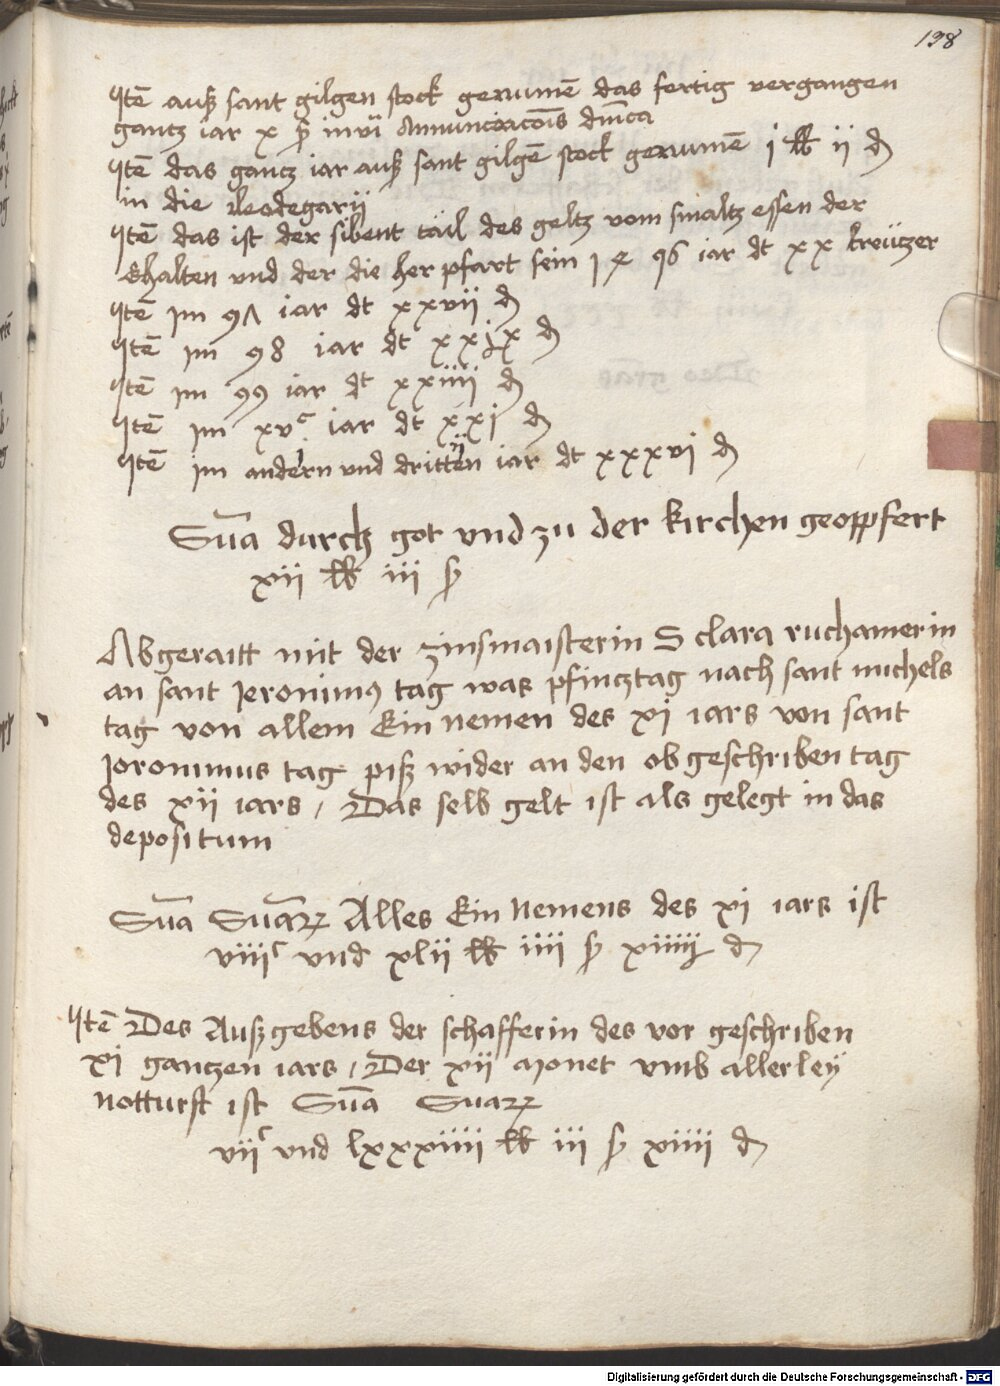 198
Itē auß sant gilgen stock genumē das fertig vergangen
gantz iar x ß Annunciacōis dn̄ica
Itē das gantz iar auß sant gilgē stock genumē j lb ij d
in die leodegarij
Itē das ist der sibent tail des geltz vom smaltz essen der
Ehalten vnd der die her pfart sein 1496 iar dt xx kreützer
Itē im 97 iar dt xxvij d
Itē im 98 iar dt xxjx d
Itē im 99 iar dt xxiiij d
Itē im xvᶜ iar dt xxj d
Itē im andern vnd dritten iar dt xxxvj d
Sūa durch got vnd zu der kirchen geopfert
xij lb iij ß
Abgeraitt mit der zinsmaisterin S clara ruchamerin
an sant Jeronimꝰ tag was pfincztag nach sant michels
tag von allem Ein nemen des xj iars von sant
Joronimus tag piß wider an den ob geschriben tag
des xij iars / Das selb gelt ist als gelegt in das
depositum
Sūa Sūaꝝ Alles Ein nemens des xj iars ist
viiijᶜ vnd xlij lb iiij ß xiiiij d
Itē Des Außgebens der schafferin des vor geschriben
xj gantzen iars / Der xij monet vmb allerley
notturft ist Sūa Suaꝝ
vijᶜ vnd lxxxiiij lb iij ß xiiij d
Digitalisierung gefördert durch die Deutsche Forschungsgemeinschaft - DFG